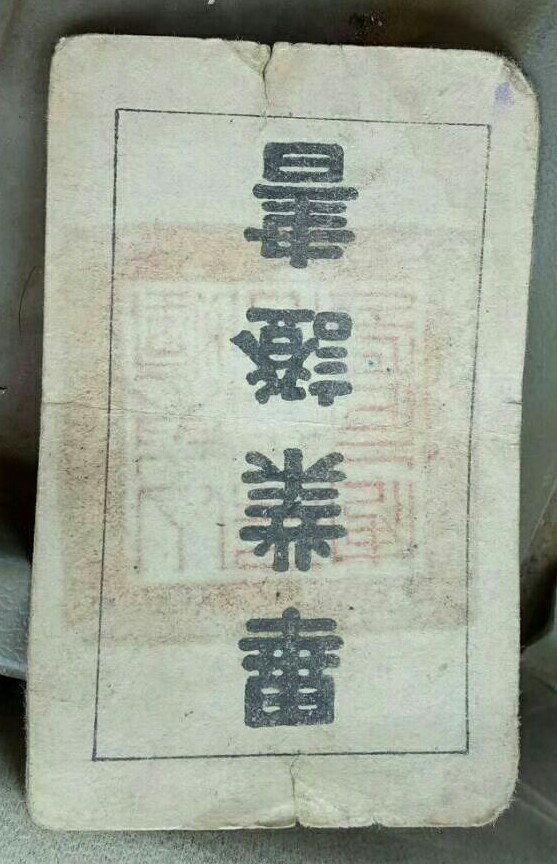 畢業證書